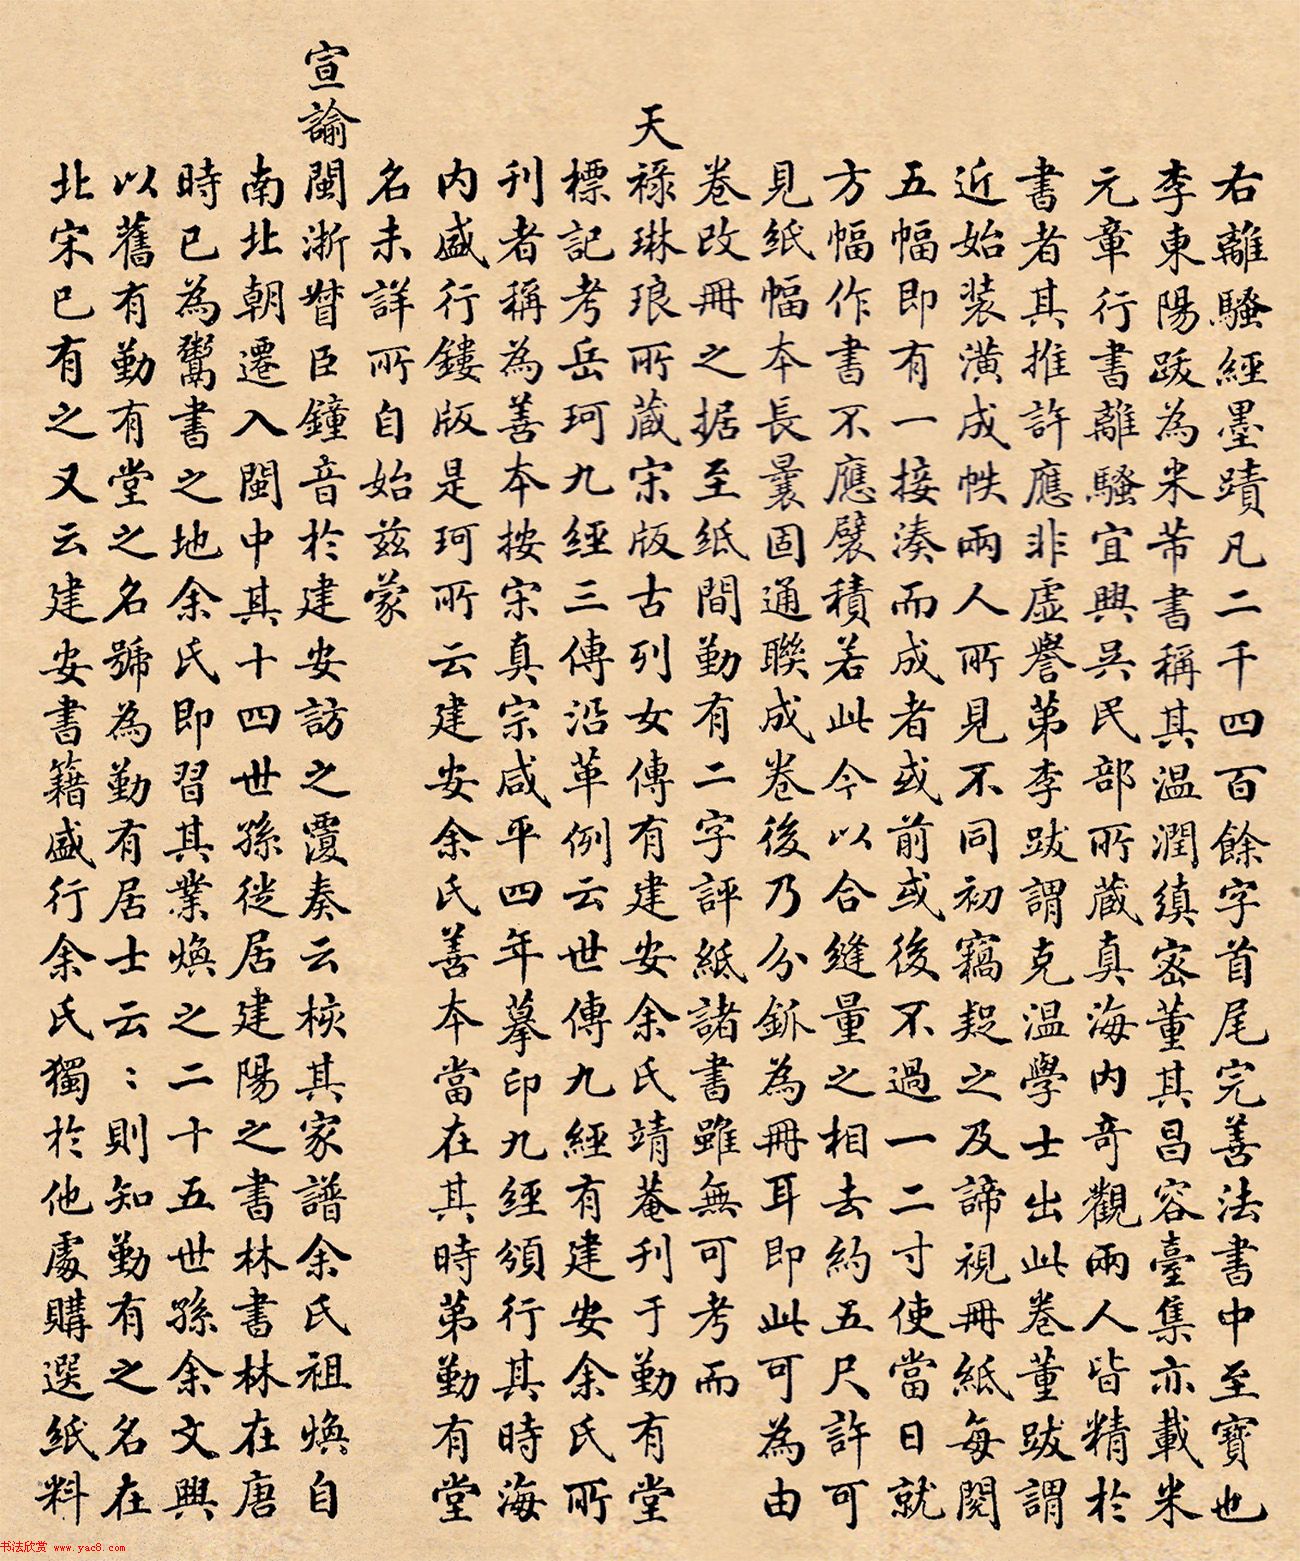 右離騷經墨蹟凡二千四百餘字首尾完善法書中至寶也
李東陽跋為米芾書稱其温潤縝密董其昌容臺集亦載米
元章行書離騷宜興吳民部所藏真海内奇觀兩人皆精於
書者其推許應非虛譽第李跋謂克温學士出此卷董跋謂
近始装潢成帙兩人所見不同初竊疑之及諦視冊紙每閱
五幅即有一接湊而成者或前或後不過一二寸使當日就
方幅作書不應襞積若此今以合縫量之相去約五尺許可
見紙幅本長曩固通聯成卷後乃分鈲為冊耳即此可為由
卷改冊之据至紙間勤有二字評紙諸書雖無可考而
天祿琳琅所藏宋版古列女傳有建安余氏靖菴刊于勤有堂
標記考岳珂九經三傳沿革例云世傳九經有建安余氏所
刊者稱為善本按宋真宗咸平四年摹印九經頒行其時海
内盛行鏤版是珂所云建安余氏善本當在其時第勤有堂
名未詳所自始茲蒙
宣諭閩浙督臣鐘音於建安訪之覆奏云核其家譜余氏祖煥自
南北朝遷入閩中其十四世孫徙居建陽之書林書林在唐
時已為鬻書之地余氏即習其業煥之二十五世孫余文興
以舊有勤有堂之名號為勤有居士云:則知勤有之名在
北宋已有之又云建安書籍盛行余氏獨於他處購選紙料
书法欣赏 www.yac8.com